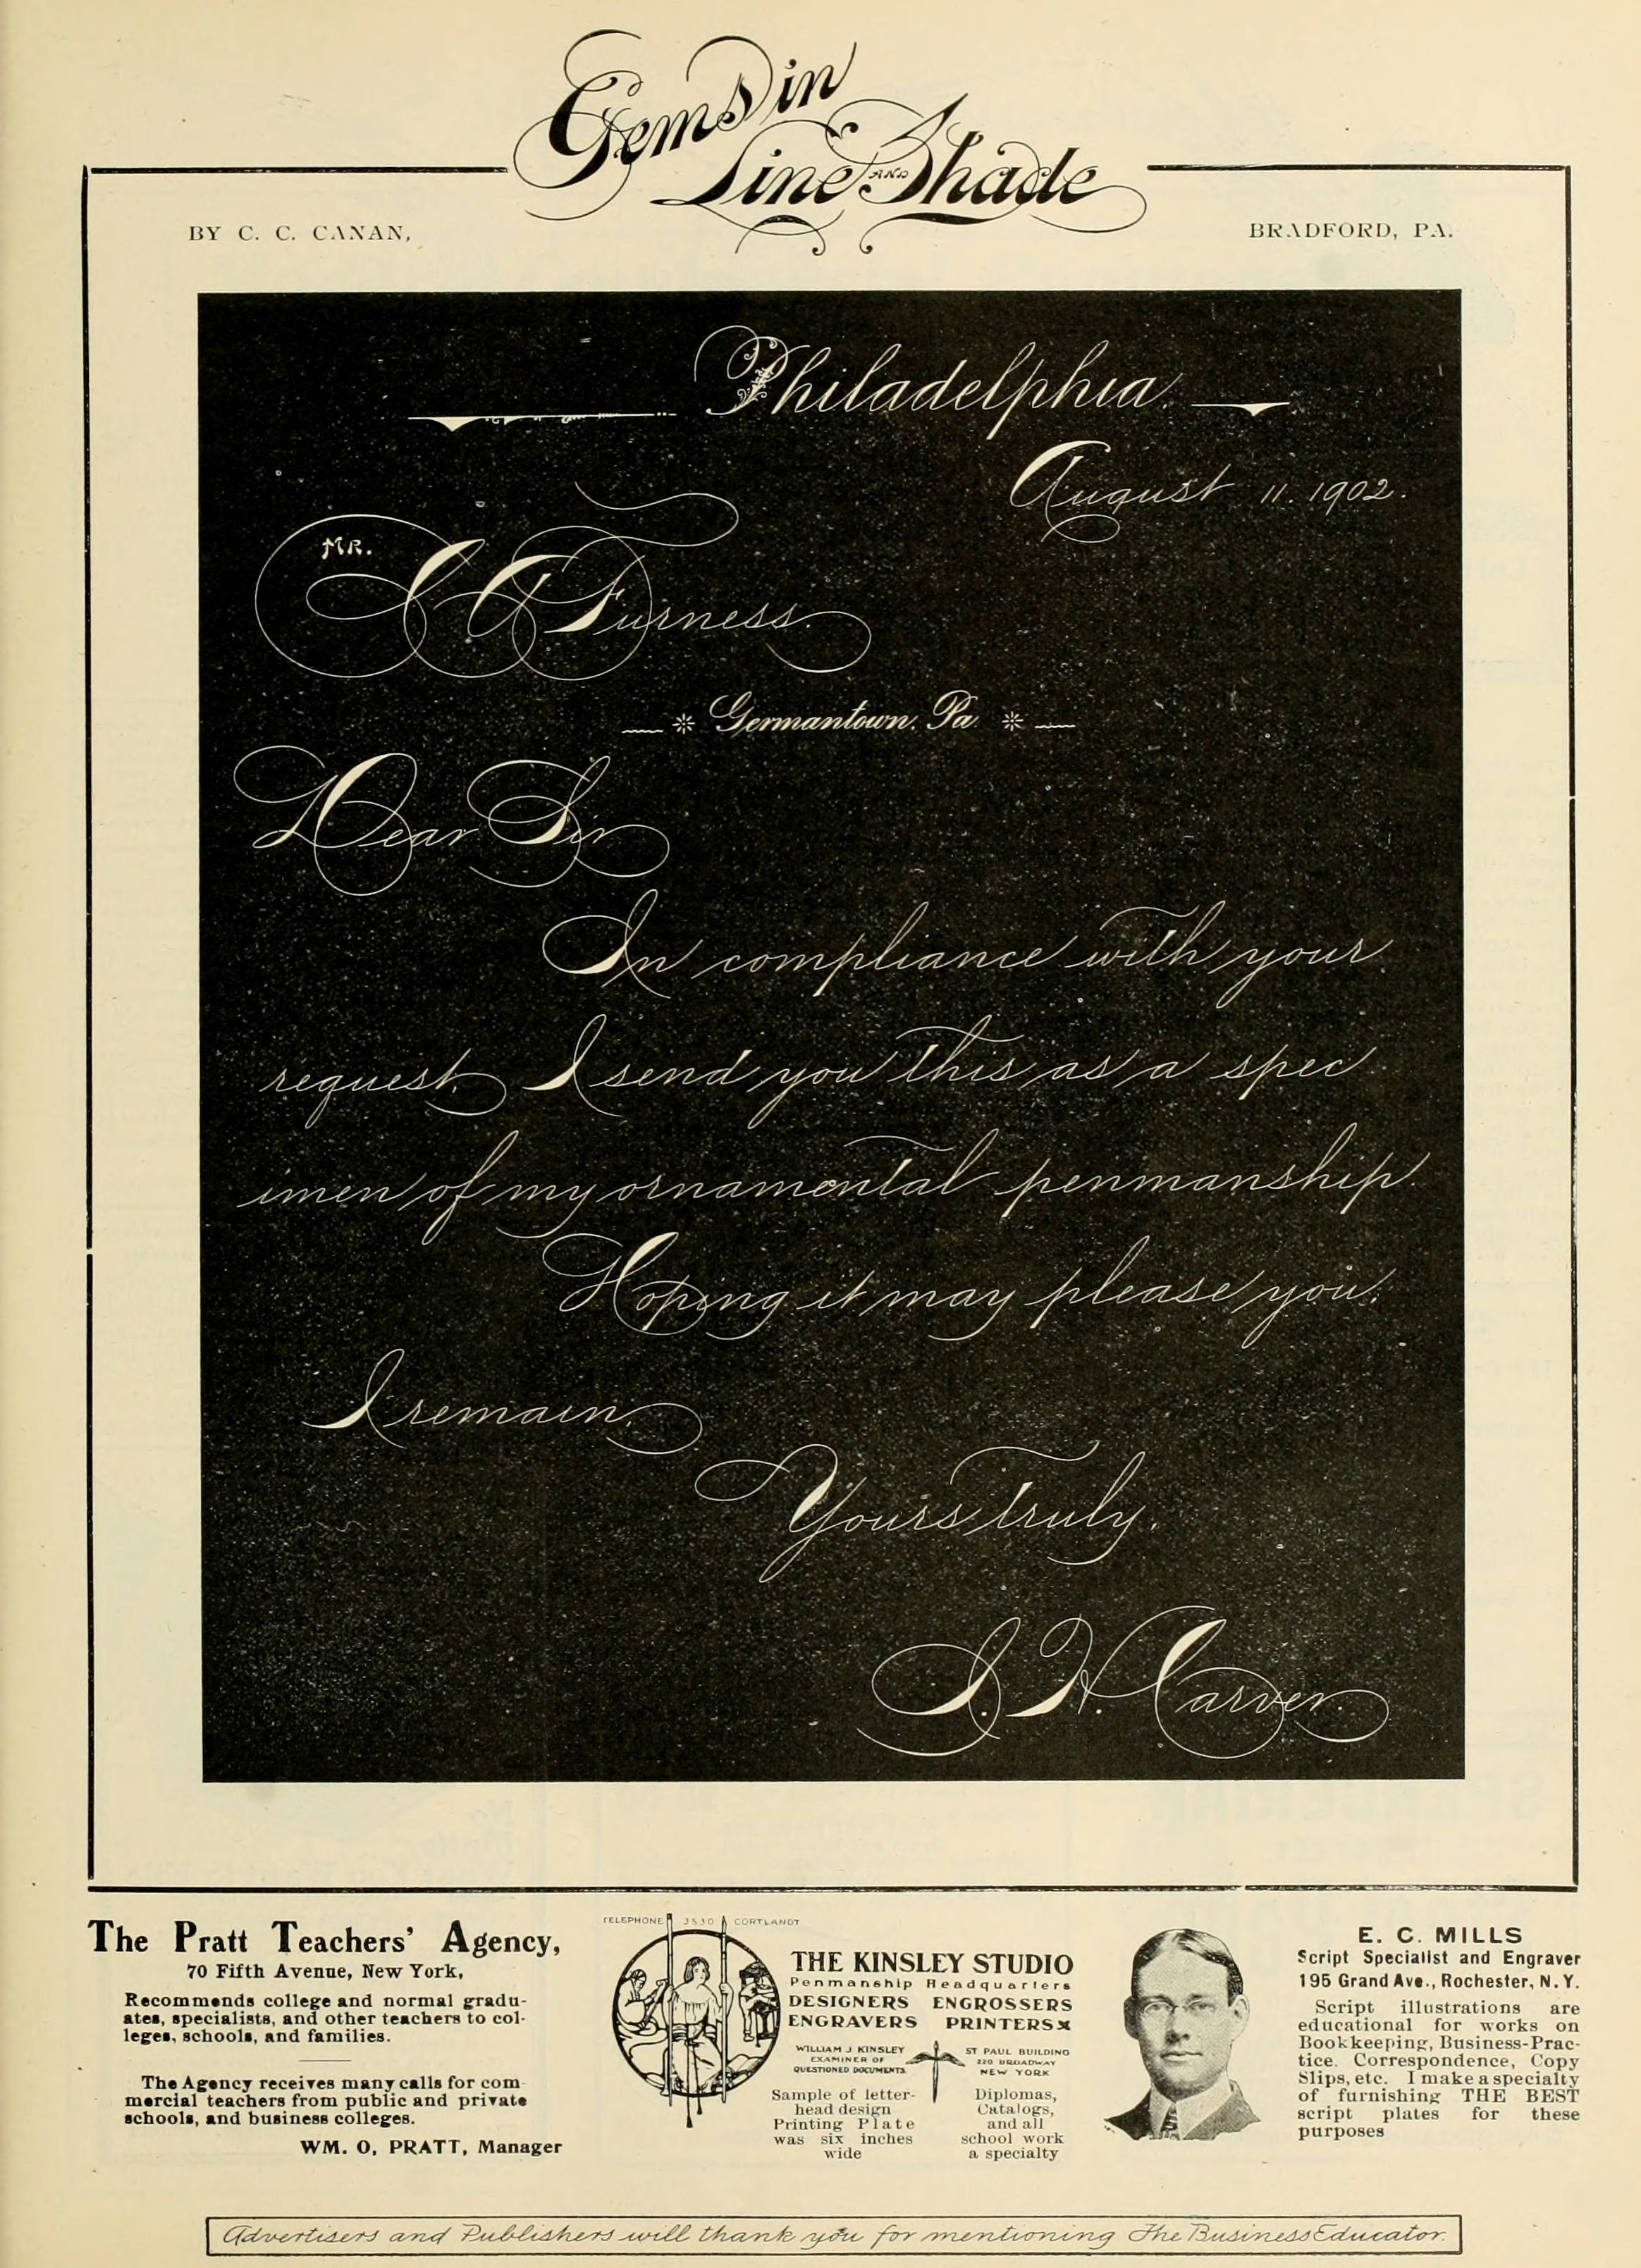 Gems in
Line AND Shade
BY C. C. CANAN,
BRADFORD, PA.
Philadelphia.
August 11. 1902.
MR.
Furness.
Germantown. Pa
Dear Sir
In compliance with your
request, I send you this as a spec
imen of my ornamental penmanship.
Hoping it may please you,
I remain,
Yours truly,
S. H. Carver.
The Pratt Teachers' Agency,
70 Fifth Avenue, New York,
Recommends college and normal gradu-
ates, specialists, and other teachers to col-
leges, schools, and families.
The Agency receives many calls for com
mercial teachers from public and private
schools, and business colleges.
WM. O, PRATT, Manager
TELEPHONE 3530 CORTLANDT
THE KINSLEY STUDIO
Penmanship Headquarters
DESIGNERS ENGROSSERS
ENGRAVERS PRINTERS
WILLIAM J KINSLEY
EXAMINER OF
QUESTIONED DOCUMENTS
ST PAUL BUILDING
220 BROADWAY
NEW YORK
Sample of letter-
head design
Printing Plate
was six inches
wide
Diplomas,
Catalogs,
and all
school work
a specialty
E. C. MILLS
Script Specialist and Engraver
195 Grand Ave., Rochester, N. Y.
Script illustrations are
educational for works on
Bookkeeping, Business-Prac-
tice. Correspondence, Copy
Slips, etc. I make a specialty
of furnishing THE BEST
script plates for these
purposes
Advertisers and Publishers will thank you for mentioning The Business Educator.